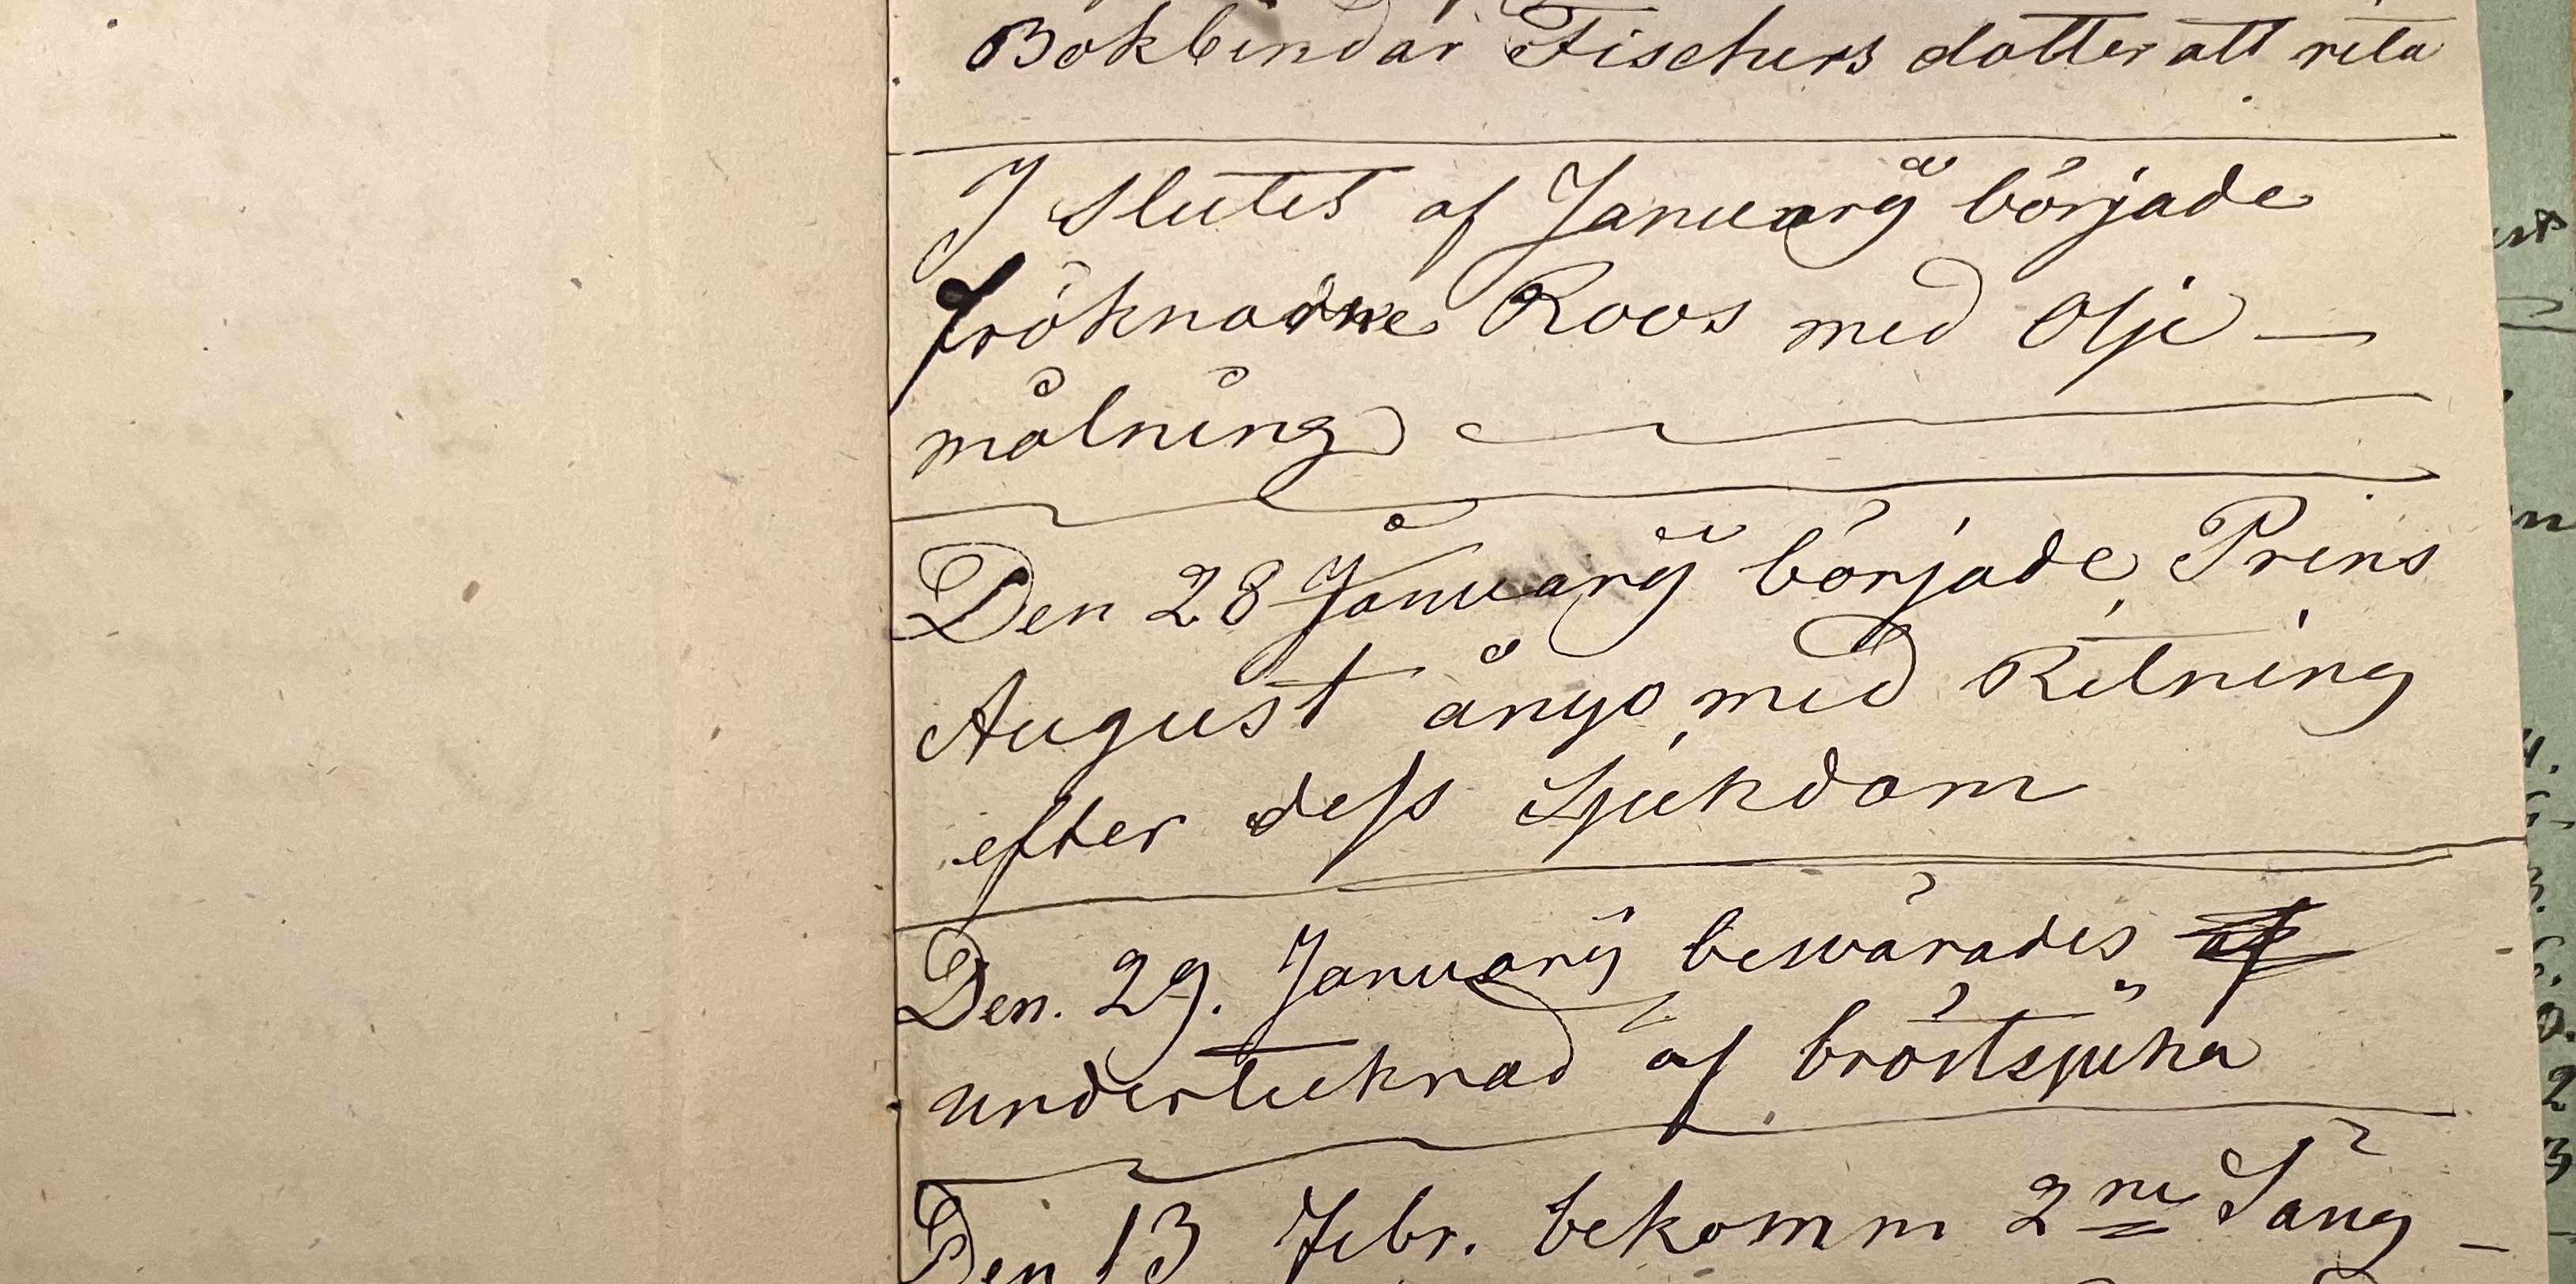 Bokbindar Fischers dotter att rita
I Slutet af Januarÿ började
Fröknarne Roos med Olje —
målning
Den 28 Januarÿ började Prins
August ånyo med Ritning
efter dess Sjukdom
Den. 29. Januarÿ beswärades af
underteknad af bröstsjuka
Den 13 Febr. bekomm 2ne Säng —